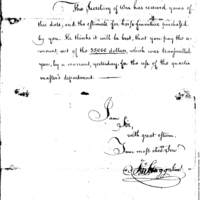 The Secretary of War has received yours of
this date, and the estimate for horse furniture purchased
by you. He thinks it will be best, that you pay the a-
mount, out of the 35000 dollars, which was transmitted
you, by a warrant, yesterday, for the use of the quarter
master's department.
I am
Sir,
with great esteem,
Your most obed. Serv.